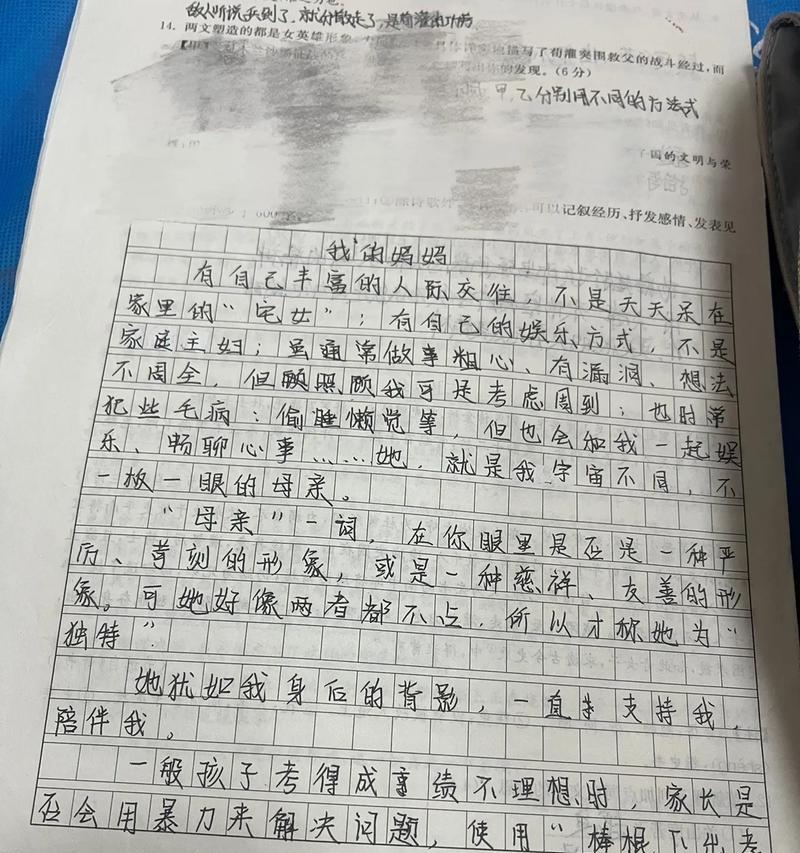 敌人听说兵到了，就分散走了，是荀灌的功劳
14. 两文塑造的都是女英雄形象，描写了荀灌突围救父的战斗经过，而
【甲】你的发现。（6分）
甲，乙分别用不同的方法式
国的文明与荣
可以记叙经历、抒发感情、发表见
600
我的妈妈
有自己丰富的人际交往，不是天天呆在
家里的“宅女”；有自己的娱乐方式，不是
家庭主妇；虽通常做事粗心、有漏洞、想法
不周全，但照顾我可是考虑周到；也时常
犯些毛病：偷睡懒觉等，但也会和我一起娱
乐、畅聊心事……她，就是我宇宙不同，不
一板一眼的母亲。
“母亲”一词，在你眼里是否是一种严
厉、苛刻的形象，或是一种慈祥、友善的形
象。可她好像两者都不占，所以才称她为“
独特”
她犹如我身后的背影，一直支持我，
陪伴我。
一般孩子考得成绩不理想时，家长是
否会用暴力来解决问题，使用“棒棍下出孝